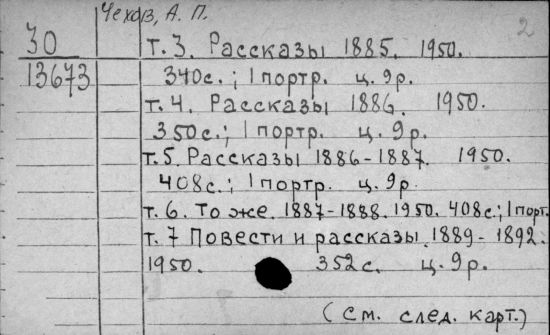 Чехов, А. П.
2
30
13673
т. 3. Рассказы 1885. 1950.
340с.; 1 портр. ц. 9р.
т. 4. Рассказы 1886. 1950.
350с.; 1 портр. ц. 9р.
т. 5. Рассказы 1886-1887. 1950.
408с.; 1 портр. ц. 9р.
т. 6. То же. 1887-1888. 1950. 408с.; 1 порт.
т. 7 Повести и рассказы. 1889-1892.
1950. 352с. ц. 9р.
(см. след. карт.)